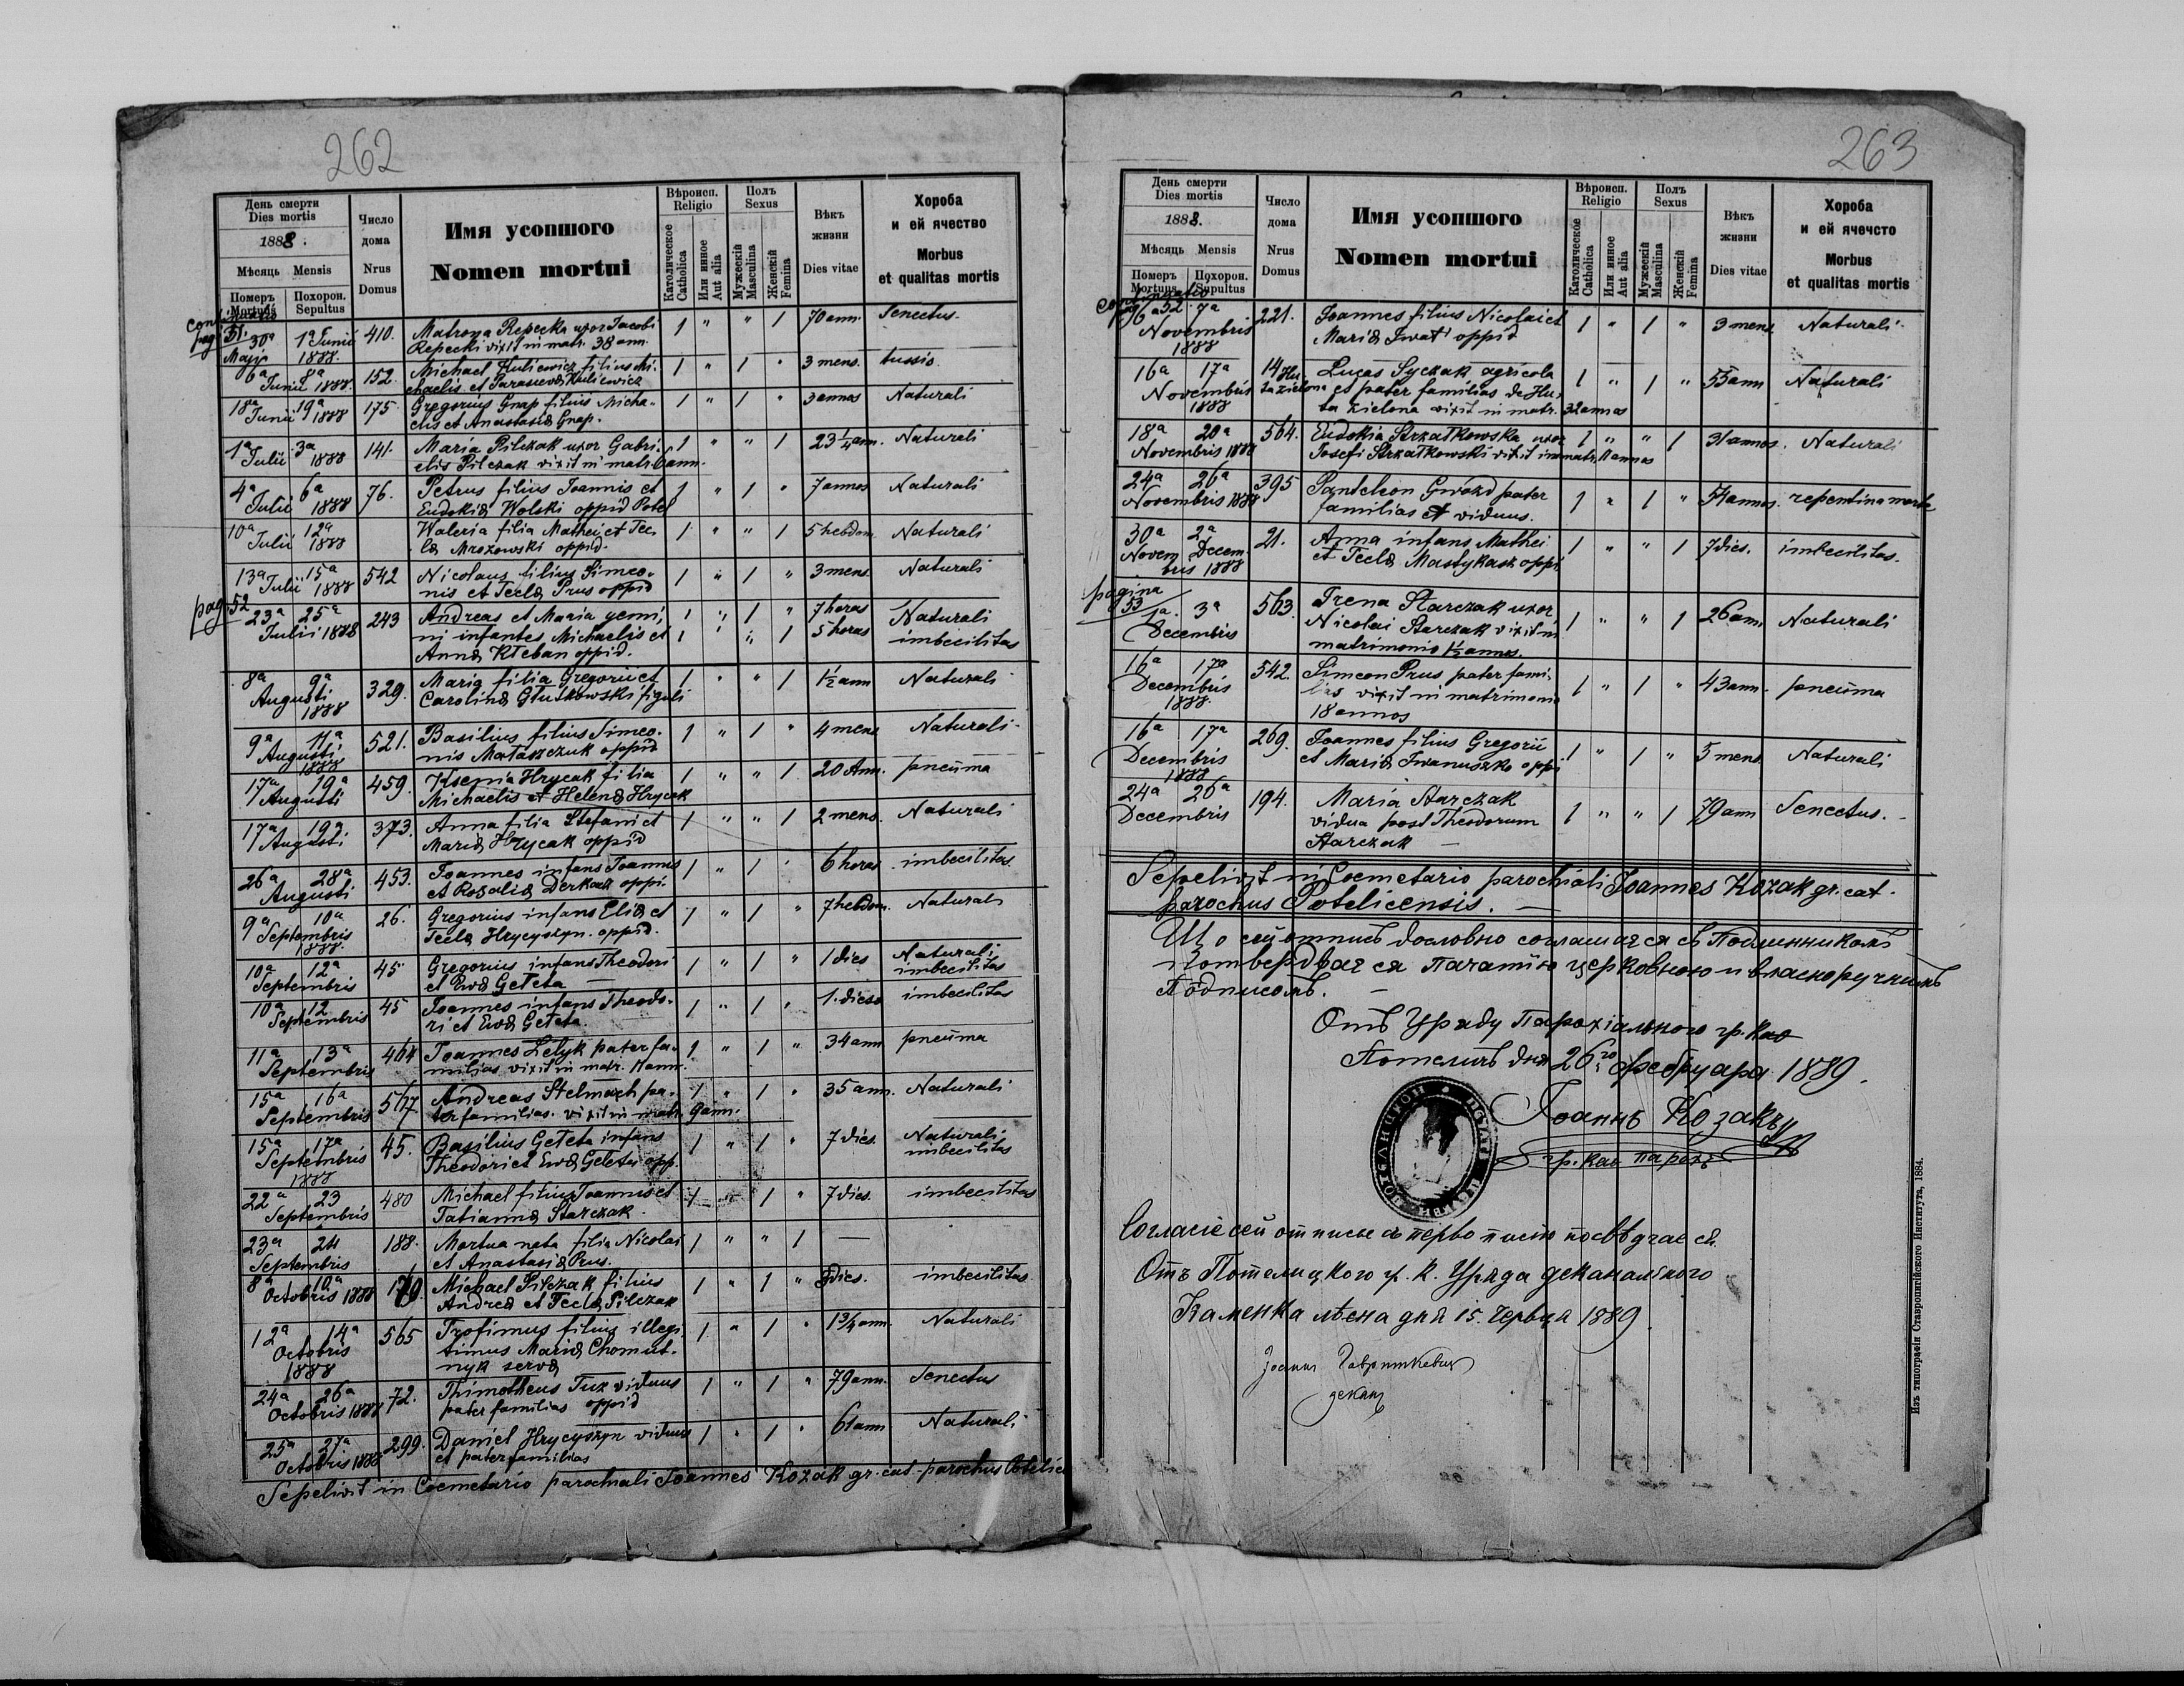 262
День смерти
Dies mortis
1888.
Мѣсяць Mensis
Померъ Mortuus
Похорон. Sepultus
Число дома
Nrus Domus
Имя усопшого
Nomen mortui
Вѣроисп. Religio
Католическое Catholica
Или инное Aut alia
Полъ Sexus
Мужескій Masculina
Женскій Femina
Вѣкъ жизни
Dies vitae
Хороба и ей ячество
Morbus et qualitas mortis
pag. 51.
30ª 1ª Junii 410. Matrona Repecka uxor Jacobi 1 " " 1 70 ann. Senectus.
Maji 1888. Repecki vixit in matr. 38 ann.
6ª 8ª 152. Michael Kuliewicz filius Mi- 1 " 1 " 3 mens. tussis.
Junii 1888. chaelis et Parascevæ Kuliewicz
18ª 19ª 175. Gregorius Gnap filius Micha- 1 " 1 " 3 annos Naturali
Junii 1888 elis et Anastasiæ Gnap.
1ª 3ª 141. Maria Pilczak uxor Gabri- 1 " " 1 23 1/4 ann. Naturali
Julii 1888 elis Pilczak vixit in matr. 6 ann.
4ª 6ª 76. Petrus filius Joannis et 1 " 1 " 7 annos Naturali
Julii 1888 Eudokiæ Wolski oppid Potel
10ª 12ª Waleria filia Mathei et Tec- 1 " " 1 5 hebdom. Naturali
Julii 1888 læ Mrozowski oppid.
13ª 15ª 542 Nicolaus filius Simeo- 1 " 1 " 3 mens. Naturali
Julii 1888 nis et Teclæ Prus oppid
pag. 52
23ª 25ª 243 Andreas et Maria gemi- 1 " 1 " 7 horas Naturali
Julii 1888 ni infantes Michaelis et 1 " " 1 5 horas imbecilitas
Annæ Kłeban oppid.
8ª 9ª 329. Maria filia Gregorii et 1 " " 1 1½ ann Naturali
Augusti 1888 Carolinæ Głutkowski figuli
9ª 11ª 521. Basilius filius Simeo- 1 " 1 " 4 mens Naturali
Augusti 1888 nis Mataszczuk oppid
17ª 19ª 459. Ksenia Hrycak filia 1 " " 1 20 Ann. pneuma
Augusti Michaelis et Helenæ Hrycak
17ª 19ª 373. Anna filia Stefani et 1 " " 1 2 mens. Naturali
Augusti Mariæ Hrycak oppid
26ª 28ª 453. Joannes infans Joannis 1 " 1 " 6 horas imbecilitas
Augusti et Rozaliæ Derkacz oppi.
9ª 10ª 26. Gregorius infans Eliæ et 1 " 1 " 7 hebdom. Naturali
Septembris 1888. Teclæ Hrycyszyn. oppid.
10ª 12ª 45 Gregorius infans Theodori 1 " 1 " 1 dies Naturali
Septembris et Evæ Gełeta imbecilitas
10ª 12 45 Joannes infans Theodo- 1 " 1 " 1. dies imbecilitas
Septembris ri et Evæ Gełeta.
11ª 13ª 464 Joannes Lelyk pater fa- 1 " 1 " 34 ann pneuma
Septembris milias vixit in matr. 11 ann.
15ª 16ª 517 Andreas Stelmach pa- 1 " 1 " 35 ann. Naturali
Septembris ter familias. vixit in matr. 9 ann.
15ª 17ª 45. Basilius Gełeta infans 1 " 1 " 7 dies. Naturali
Septembris 1888 Theodori et Evæ Geleta opp. imbecilitas
22ª 23 480 Michael filius Joannis et 1 " 1 " 7 dies. imbecilitas
Septembris Tatiannæ Starczak.
23ª 24 188. Mortua nata filia Nicolai 1 " " 1 —
Septembris et Anastasiæ Prus.
8ª 10ª Michael Pilczak filius 1 " 1 " 8 dies. imbecilitas
Octobris 1888 Andreæ et Teclæ Pilczak
12ª 14ª 565 Trofimus filius illegi- 1 " 1 " 1 3/4 ann. Naturali
Octobris 1888 timus Mariæ Chomut-
nyk servæ
24ª 26ª 72. Thimotheus Tuz viduus 1 " 1 " 79 ann. Senectus
Octobris 1888 pater familias oppid
25ª 27ª 299. Daniel Hrycyszyn viduus 1 " 1 " 61 ann Naturali
Octobris 1888 et pater familias
Sepelivit in Coemetario parochiali Joannes Kozak gr. cat. parochus Potelic
263
День смерти
Dies mortis
1888.
Мѣсяць Mensis
Померъ Mortuus
Похорон. Sepultus
Число дома
Nrus Domus
Имя усопшого
Nomen mortui
Вѣроисп. Religio
Католическое Catholica
Или инное Aut alia
Полъ Sexus
Мужескій Masculina
Женскій Femina
Вѣкъ жизни
Dies vitae
Хороба и ей ячечсто
Morbus et qualitas mortis
continuatio
pag. 52.
6ª 7ª 221. Joannes filius Nicolai et 1 " 1 " 3 mens Naturali
Novembris 1888 Mariæ Iwat oppid
16ª 17ª 14 Hu- Lucas Syczak agricola 1 " 1 " 55 ann Naturali
Novembris 1888 ta zielona et pater familias de Hu-
ta zielona vixit in matr. 32 annos
18ª 20ª 564. Eudokia Strzałkowska uxor 1 " " 1 31 annos. Naturali
Novembris 1888 Josefi Strzałkowski vixit in matr. 11 annos
24ª 26ª 395 Panteleon Gwozd pater 1 " 1 " 54 annos. repentina morte
Novembris 1888 familias et viduus.
30ª 2ª 21. Anna infans Mathei 1 " " 1 7 dies. imbecilitas.
Novembris Decem. 1888 et Teclæ Mastykasz oppi
pagina 53
1ª. 3ª 563. Irena Starczak uxor 1 " " 1 26 ann. Naturali
Decembris Nicolai Starczak vixit in
matrimonio 1½ annos.
16ª 17ª 542. Simeon Prus pater fami- 1 " 1 " 43 ann. pneuma
Decembris 1888. lias vixit in matrimonio
18 annos
16ª 17ª 269. Joannes filius Gregorii 1 " 1 " 5 mens Naturali
Decembris 1888 et Mariæ Iwanuszko oppi
24ª 26ª 194. Maria Starczak 1 " " 1 79 ann Senectus.
Decembris vidua post Theodorum
Starczak —
Sepelivit in Coemetario parochiali Joannes Kozak gr. cat.
parochus Potelicensis. —
Що сей отписъ дословно соглашается съ Подлинникомъ
потверджае ся печатію церковною и власноручнымъ
Подписомъ. —
Отъ Уряду Парохіального гр. кат
Потеличъ дня 26го Фебруара 1889.
Іоаннъ Козакъ
гр. кат. парохъ
Согласіе сей отписи съ первописею посвѣдчае ся.
Отъ Потелицкого гр. к. Уряда деканального
Каменка лѣсна дня 15. Червця 1889.
Іоанн
декан
Изъ типографіи Ставропигійского Института, 1884.